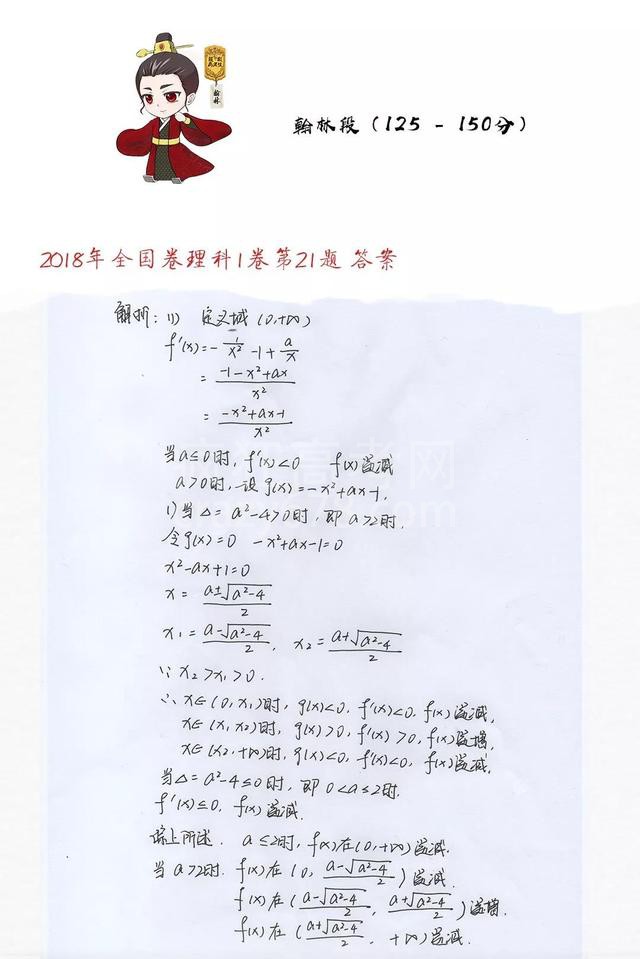 翰林
翰林段（125 - 150分）
2018年全国卷理科1卷第21题 答案
解析：(1) 定义域(0,+∞)
f'(x)=-1/x²-1+a/x
=(-1-x²+ax)/x²
=(-x²+ax-1)/x²
当a≤0时, f'(x)<0 f(x)递减
a>0时, 设g(x)=-x²+ax-1,
1)当△=a²-4>0时, 即a>2时.
令g(x)=0 -x²+ax-1=0
x²-ax+1=0
x=(a±√(a²-4))/2
x₁=(a-√(a²-4))/2, x₂=(a+√(a²-4))/2
∵ x₂>x₁>0.
∴ x∈(0,x₁)时, g(x)<0, f'(x)<0, f(x)递减,
x∈(x₁,x₂)时, g(x)>0, f'(x)>0, f(x)递增,
x∈(x₂,+∞)时, g(x)<0, f'(x)<0, f(x)递减,
当△=a²-4≤0时, 即0<a≤2时.
f'(x)≤0, f(x)递减.
综上所述, a≤2时, f(x)在(0,+∞)递减.
当a>2时. f(x)在(0, (a-√(a²-4))/2)递减.
f(x)在((a-√(a²-4))/2, (a+√(a²-4))/2)递增.
f(x)在((a+√(a²-4))/2, +∞)递减.